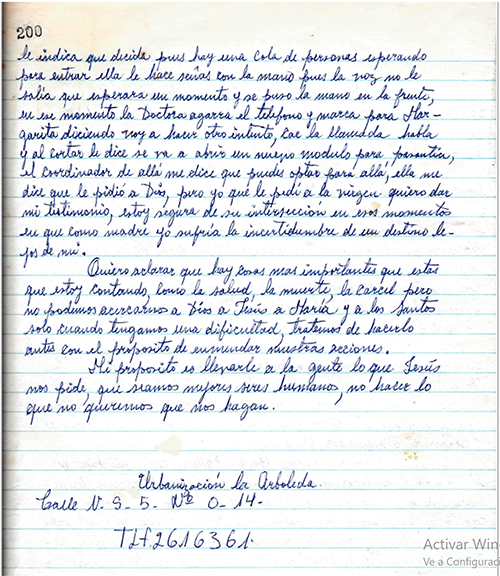 200
le indica que decida pues hay una cola de personas esperando
para entrar ella le hace señas con la mano pues la voz no le
salia que esperara un momento y se puso la mano en la frente,
en ese momento la Doctora agarra el telefono y marca para Mar-
garita diciendo voy a hacer otro intento, cae la llamada habla
y al cortar le dice se va a abrir un nuevo modulo para pasantía,
el coordinador de allá me dice que puedes optar para allá, ella me
dice que le pidió a Dios, pero yó que le pedí a la virgen quiero dar
mi testimonio, estoy segura de su intersección en esos momentos
en que como madre yó sufría la incertidumbre de un destino le-
jos de mi.
Quiero aclarar que hay cosas mas importantes que estas
que estoy contando, como la salud, la muerte, la carcel pero
no podemos acercarnos a Dios a Jesús a María y a los Santos
solo cuando tengamos una dificultad, tratemos de hacerlo
antes con el proposito de enmendar nuestras acciones.
Mi proposito es llevarle a la gente lo que Jesús
nos pide, que seamos mejores seres humanos, no hacer lo
que no queremos que nos hagan.
Urbanización la Arboleda.
Calle N. S- 5- Nº 0-14-
Tlf. 2616361.
Activar Win
Ve a Configuraci